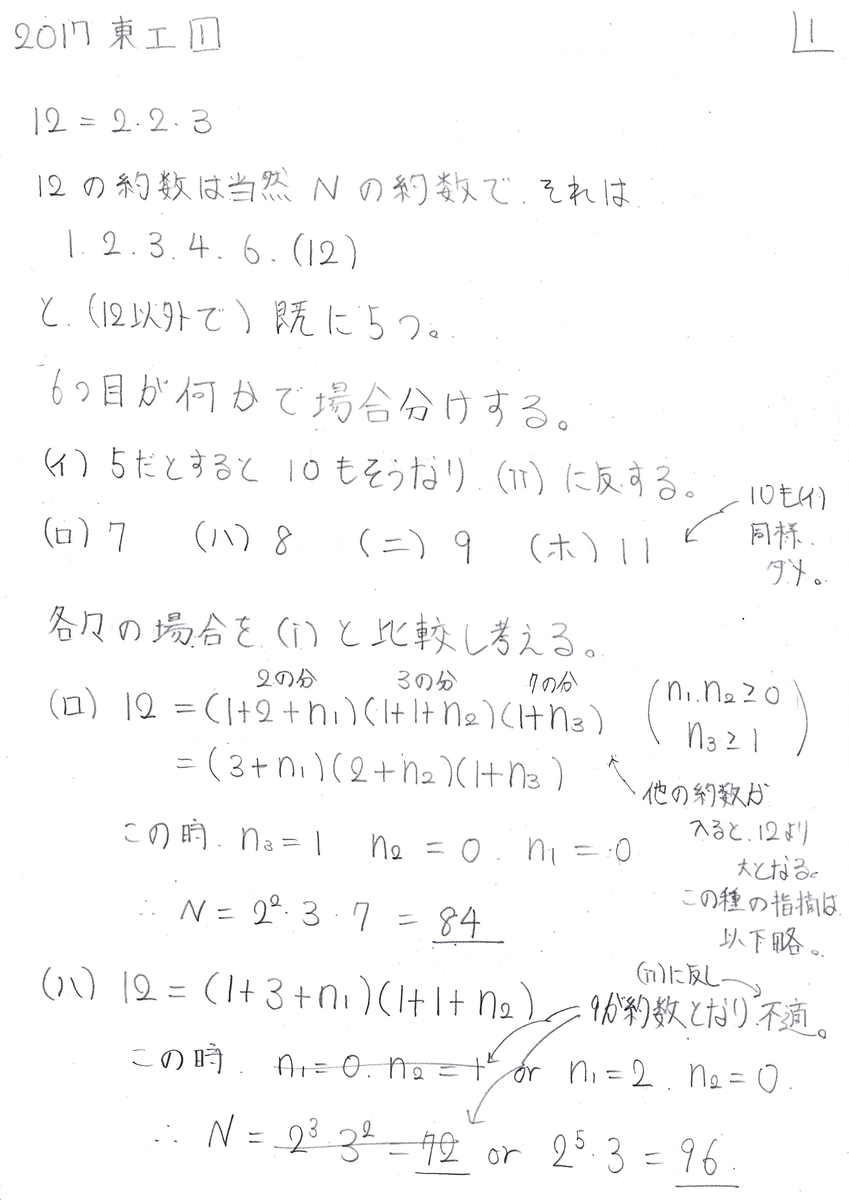 2017 東工 1
1
12 = 2・2・3
12 の約数は当然 N の約数で、それは
1, 2, 3, 4, 6, (12)
と、(12以外で) 既に5つ。
6つ目が何かで場合分けする。
(イ) 5だとすると 10もそうなり、(ii) に反する。
(ロ) 7 (ハ) 8 (ニ) 9 (ホ) 11
10も(イ)
同様、
ダメ。
各々の場合を (i) と比較し考える。
2の分 3の分 7の分
(ロ) 12 = (1+2+n₁)(1+1+n₂)(1+n₃) (n₁, n₂ ≧ 0
n₃ ≧ 1)
= (3+n₁)(2+n₂)(1+n₃)
他の約数が
入ると、12より
大となる。
この種の指摘は
以下略。
この時、n₃ = 1 n₂ = 0, n₁ = 0
∴ N = 2²・3・7 = 84
(ハ) 12 = (1+3+n₁)(1+1+n₂)
(ii)に反し
9が約数となり、不適。
この時、n₁ = 0, n₂ = 1 or n₁ = 2, n₂ = 0.
∴ N = 2³・3² = 72 or 2⁵・3 = 96.